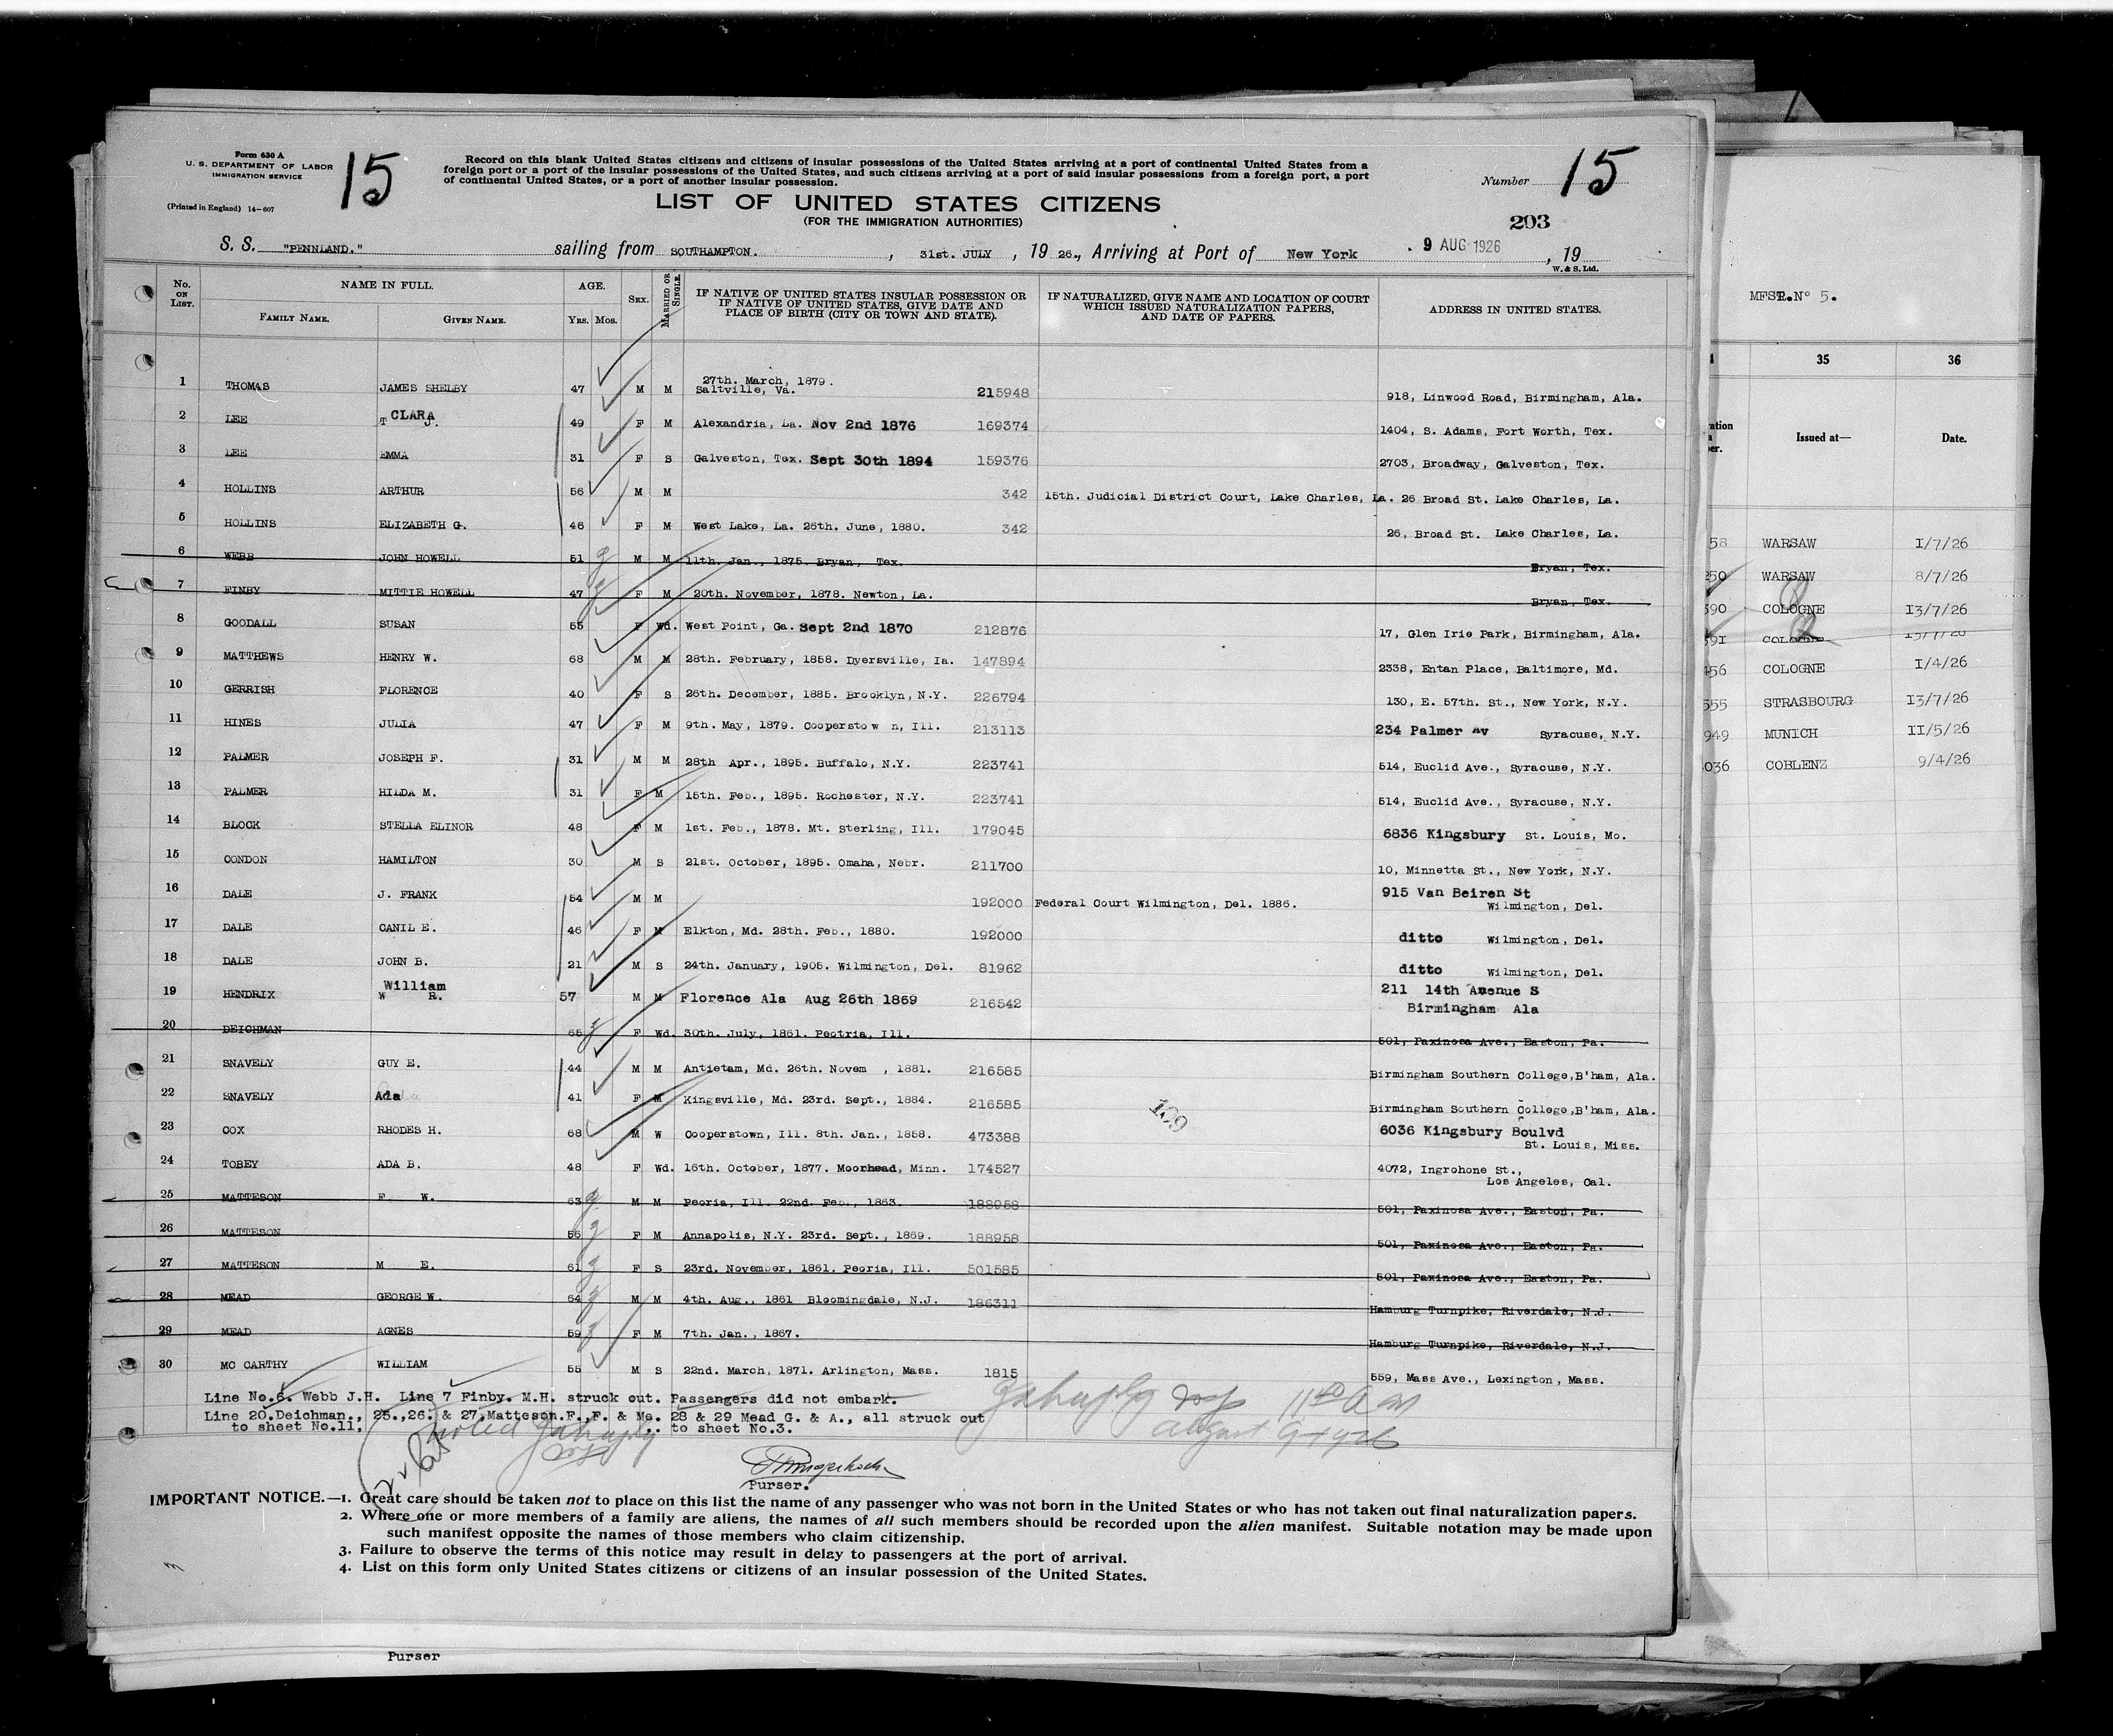 Form 630 A
U. S. DEPARTMENT OF LABOR
IMMIGRATION SERVICE
(Printed in England) 14-607
15
Record on this blank United States citizens and citizens of insular possessions of the United States arriving at a port of continental United States from a
foreign port or a port of the insular possessions of the United States, and such citizens arriving at a port of said insular possessions from a foreign port, a port
of continental United States, or a port of another insular possession.
Number 15
LIST OF UNITED STATES CITIZENS
(FOR THE IMMIGRATION AUTHORITIES)
293
S. S. "PENNLAND." sailing from SOUTHAMPTON. , 31st. JULY , 19 26., Arriving at Port of New York . 9 AUG 1926 , 19
W. & S. Ltd.
No. ON LIST. NAME IN FULL. FAMILY NAME. GIVEN NAME. AGE. YRS. MOS. SEX. MARRIED OR SINGLE. IF NATIVE OF UNITED STATES INSULAR POSSESSION OR IF NATIVE OF UNITED STATES, GIVE DATE AND PLACE OF BIRTH (CITY OR TOWN AND STATE). IF NATURALIZED, GIVE NAME AND LOCATION OF COURT WHICH ISSUED NATURALIZATION PAPERS, AND DATE OF PAPERS. ADDRESS IN UNITED STATES.
1 THOMAS JAMES SHELBY 47 M M 27th. March, 1879. Saltville, Va. 215948 918, Linwood Road, Birmingham, Ala.
2 LEE T CLARA J. 49 F M Alexandria, La. Nov 2nd 1876 169374 1404, S. Adams, Fort Worth, Tex.
3 LEE EMMA 31 F S Galveston, Tex. Sept 30th 1894 159376 2703, Broadway, Galveston, Tex.
4 HOLLINS ARTHUR 56 M M 342 15th. Judicial District Court, Lake Charles, La. 26 Broad St. Lake Charles, La.
5 HOLLINS ELIZABETH G. 46 F M West Lake, La. 26th. June, 1880. 342 26, Broad St. Lake Charles, La.
6 WEBB JOHN HOWELL 51 M M 11th. Jan., 1875. Bryan, Tex. Bryan, Tex.
7 FINBY MITTIE HOWELL 47 F M 20th. November, 1878. Newton, La. Bryan, Tex.
8 GOODALL SUSAN 55 F Wd. West Point, Ga. Sept 2nd 1870 212876 17, Glen Irie Park, Birmingham, Ala.
9 MATTHEWS HENRY W. 68 M M 28th. February, 1858. Dyersville, Ia. 147894 2338, Entan Place, Baltimore, Md.
10 GERRISH FLORENCE 40 F S 26th. December, 1885. Brooklyn, N.Y. 226794 130, E. 57th. St., New York, N.Y.
11 HINES JULIA 47 F M 9th. May, 1879. Cooperstow n, Ill. 213113 234 Palmer Av Syracuse, N.Y.
12 PALMER JOSEPH F. 31 M M 28th Apr., 1895. Buffalo, N.Y. 223741 514, Euclid Ave., Syracuse, N.Y.
13 PALMER HILDA M. 31 F M 15th. Feb., 1895. Rochester, N.Y. 223741 514, Euclid Ave., Syracuse, N.Y.
14 BLOCK STELLA ELINOR 48 F M 1st. Feb., 1878. Mt. Sterling, Ill. 179045 6836 Kingsbury St. Louis, Mo.
15 CONDON HAMILTON 30 M S 21st. October, 1895. Omaha, Nebr. 211700 10, Minnetta St., New York, N.Y.
16 DALE J. FRANK 54 M M 192000 Federal Court Wilmington, Del. 1886. 915 Van Beiren St Wilmington, Del.
17 DALE CANIL E. 46 F M Elkton, Md. 28th. Feb., 1880. 192000 ditto Wilmington, Del.
18 DALE JOHN B. 21 M S 24th. January, 1905. Wilmington, Del. 81962 ditto Wilmington, Del.
19 HENDRIX William W R. 57 M M Florence Ala Aug 26th 1869 216542 211 14th Avenue S Birmingham Ala
20 DEICHMAN 65 F Wd. 30th. July, 1861. Peotria, Ill. 501, Paxinosa Ave., Easton, Pa.
21 SNAVELY GUY E. 44 M M Antietam, Md. 26th. Novem , 1881. 216585 Birmingham Southern College,B'ham, Ala.
22 SNAVELY Ada 41 F M Kingsville, Md. 23rd. Sept., 1884. 216585 Birmingham Southern College,B'ham, Ala.
23 COX RHODES H. 68 M W Cooperstown, Ill. 8th. Jan., 1858. 473388 6036 Kingsbury Boulvd St. Louis, Miss.
24 TOBEY ADA B. 48 F Wd. 16th. October, 1877. Moorhead, Minn. 174527 4072, Ingrohone St., Los Angeles, Cal.
25 MATTESON F. W. 63 M M Peoria, Ill. 22nd. Feb., 1863. 188958 501, Paxinosa Ave., Easton, Pa.
26 MATTESON 56 F M Annapolis, N.Y. 23rd. Sept., 1869. 188958 501, Paxinosa Ave., Easton, Pa.
27 MATTESON M E. 61 F S 23rd. November, 1861. Peoria, Ill. 501585 501, Paxinosa Ave., Easton, Pa.
28 MEAD GEORGE W. 64 M M 4th. Aug., 1861 Bloomingdale, N.J. 186311 Hamburg Turnpike, Riverdale, N.J.
29 MEAD AGNES 59 F M 7th. Jan., 1867. Hamburg Turnpike, Riverdale, N.J.
30 MC CARTHY WILLIAM 55 M S 22nd. March, 1871. Arlington, Mass. 1815 559, Mass Ave., Lexington, Mass.
109
Line No.6. Webb J.H. Line 7 Finby. M.H. struck out. Passengers did not embark.
Line 20.Deichman., 25.,26. & 27,Matteson.F.,F. & Me. 28 & 29 Mead G. & A., all struck out
to sheet No.11. to sheet No.3.
11 40 AM
August 9th 1926
Purser.
IMPORTANT NOTICE.—1. Great care should be taken not to place on this list the name of any passenger who was not born in the United States or who has not taken out final naturalization papers.
2. Where one or more members of a family are aliens, the names of all such members should be recorded upon the alien manifest. Suitable notation may be made upon
such manifest opposite the names of those members who claim citizenship.
3. Failure to observe the terms of this notice may result in delay to passengers at the port of arrival.
4. List on this form only United States citizens or citizens of an insular possession of the United States.
Purser
MFST. No 5.
35 36
Issued at— Date.
58 WARSAW 1/7/26
250 WARSAW 8/7/26
390 COLOGNE 13/7/26
391 COLOGNE
456 COLOGNE 1/4/26
555 STRASBOURG 13/7/26
949 MUNICH 11/5/26
036 COBLENZ 9/4/26